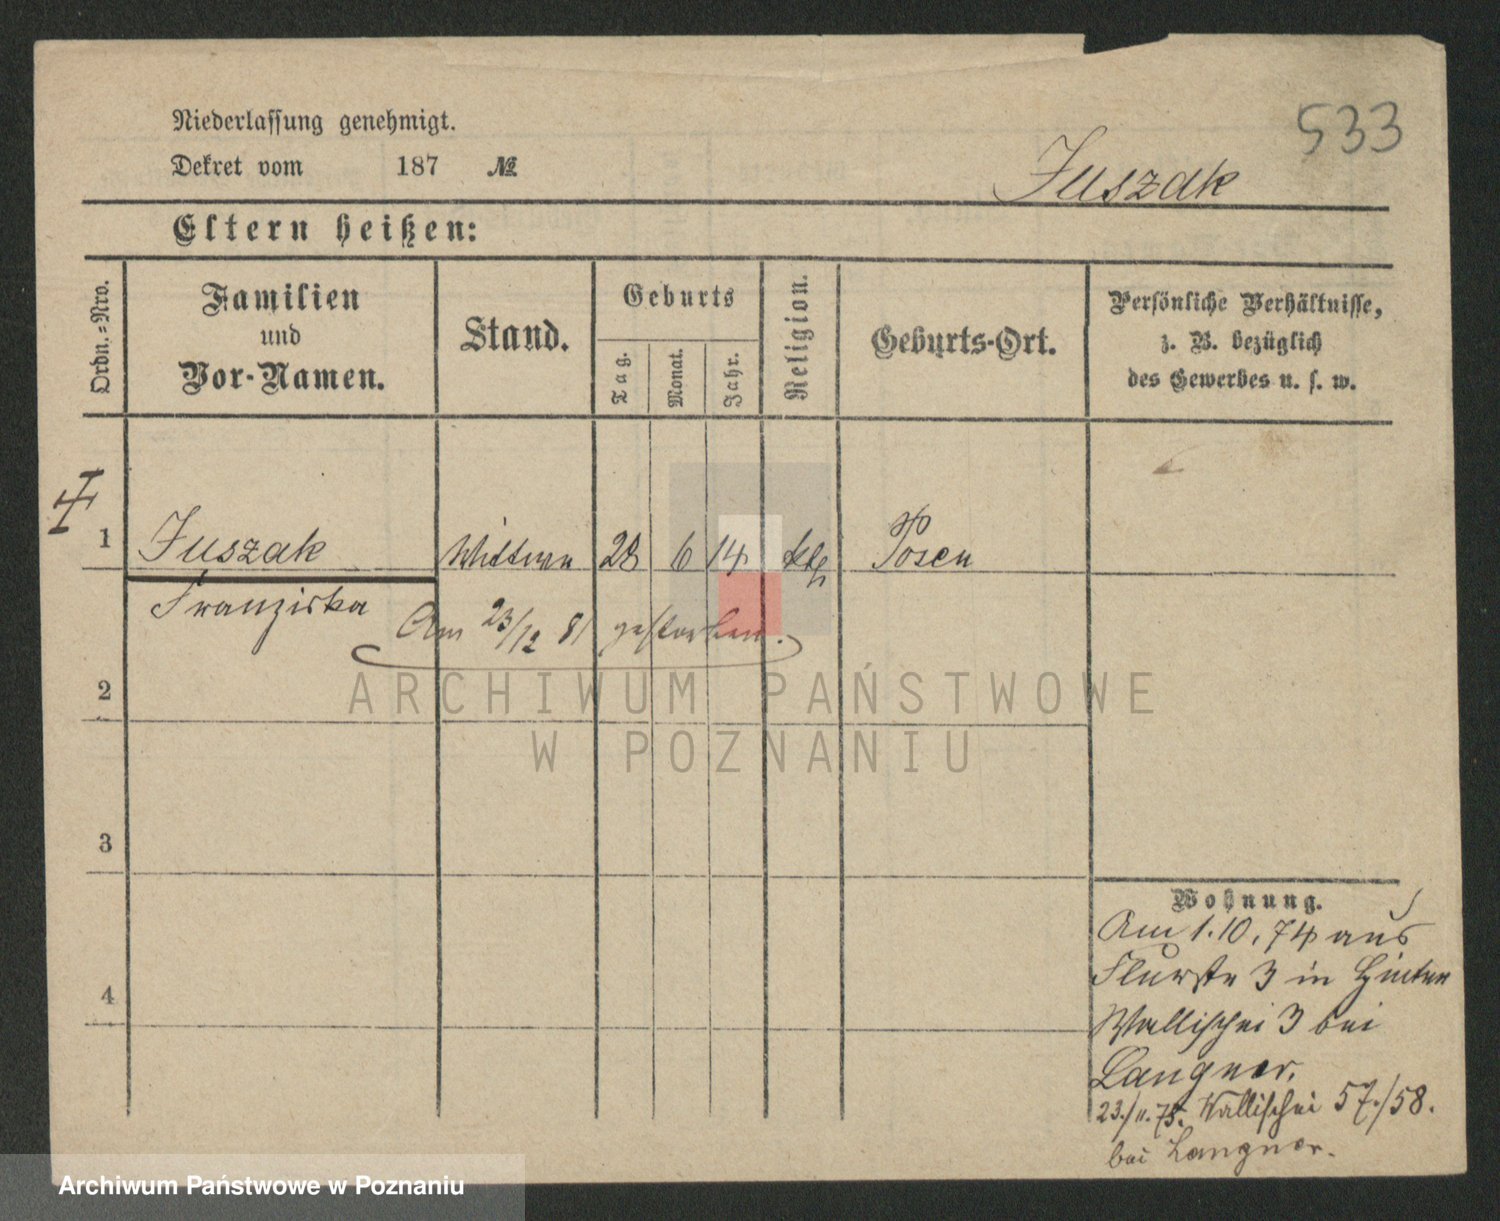 533
Niederlassung genehmigt.
Dekret vom 187 №
Juszak
Eltern heißen:
Ordn.-Nro.
Familien
und
Vor-Namen.
Stand.
Geburts
Tag.
Monat.
Jahr.
Religion.
Geburts-Ort.
Persönliche Verhältnisse,
z. B. bezüglich
des Gewerbes u. s. w.
1 Juszak Wittwe 28 6 14 kth Posen
Franziska
Am 23/12 81 gestorben.
2
3
4
Wohnung.
Am 1.10.74 aus
Flurstr 3 in Hinter
Wallischei 3 bei
Langner.
23./11.75. Wallischei 57./58.
bei Langner.
ARCHIWUM PAŃSTWOWE
W POZNANIU
Archiwum Państwowe w Poznaniu